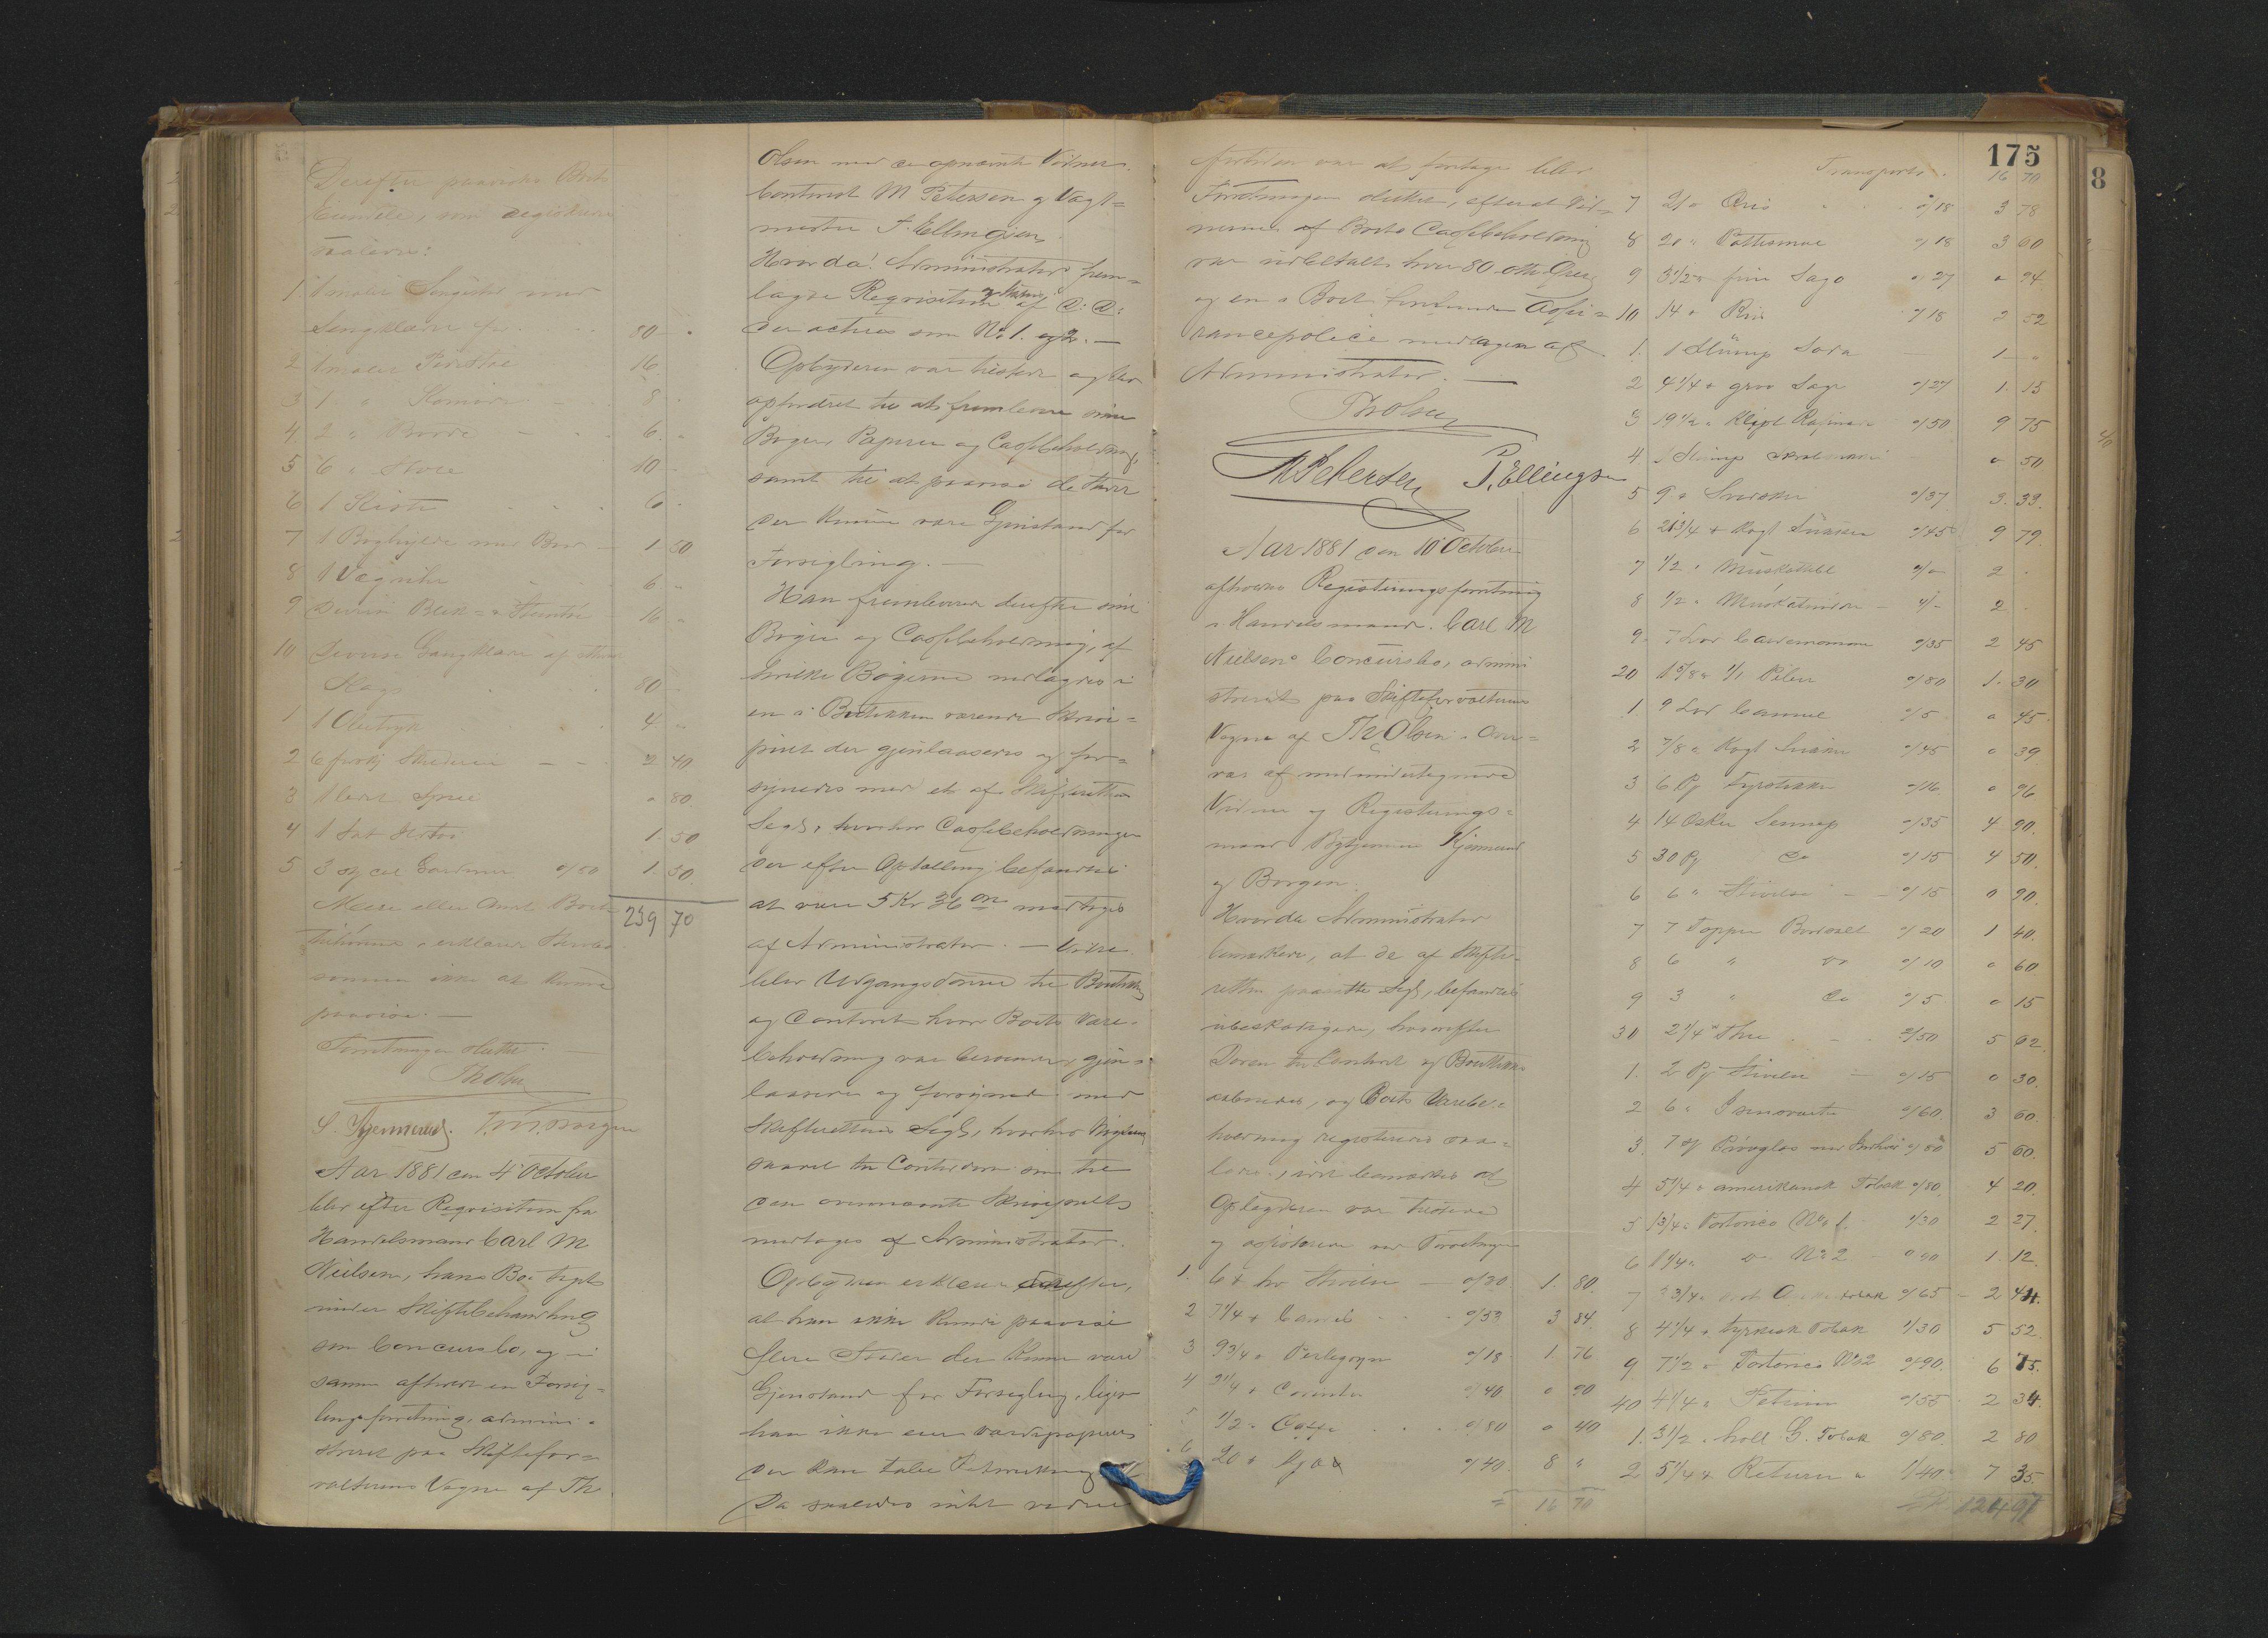 Derefter paaviste Boets
Eiendele, som registrere
saalede:
1. 1 malet Sengested med
Sengklæder for 80 -
2 1 malet 16
3 1 " Komode 8
4 2 " Borde 6 "
5 6 " Stole 10
6 1 Kiste 6
7 1 Boghylde med 1 50
8 1 Væguhr 6 "
9 Diverse Blik- & Steentøi 16 "
10 Diverse Gangklæder af
Slags 80
1 1 Olietryk 4
2 6 Skilderier 2 40
3 1 Speil " 80
4 1 Sat 1. 50
5 3 Gardiner a/50 1. 50
Mere eller Andet Boet 239 70
tilhørende erklærede
sammen ikke at kunne
paavise. —
Forretningen sluttet. —
ThOlsen
S. Kjennerud. T. M. Borgen
Aar 1881 den 4 October
blev efter Requisition fra
Handelsmand Carl M
Nielsen, hans Bo taget
under Skiftebehandling
som Concursbo, og i
samme afholdt en Forseg=
lingsforretning, admini=
streret paa Skiftefor=
valterens Vegne af Th.
Olsen med de opnævnte Vidner
Contorist M Petersen og Vagt=
mester P. Ellingsen
Hvorda! Administrator frem=
lagde Reqvisition af D: D:
der acteres som No 1. og 2. —
Opbyderen var tilstede og blev
opfordret til at fremlevere sine
Bøger Papirer og Cassebeholdning,
samt til at paavise de Steder
der kunne være Gjenstand for
Forsigling. —
Han fremleverede derefter sine
Bøger og Cassebeholdning, af
hvilke Bøgerne nedlagdes i
en i Butikken værende Skrive=
pult der gjenlaasedes og for=
synedes med et af Skifterettens
Segl, hvorhos Cassebeholdningen
der efter Optælling befandtes
at være 5 Kr 36 øre modtoges
af Administrator. —
blev Udgangsdøren til Butikken
og Contoret hvor Boets Vare-
beholdning var beroende, gjen=
laasede og forsynede med
Skifterettens Segl, hvorhos Nøglerne
saavel til Contordøren som til
den ommeldte Skrivepult
modtoges af Administrator.
Opbyderen erklærede derefter,
at han ikke kunde paavise
flere Steder der kunne være
Gjenstand for Forsegling, ligesom
han ikke eier Værdipapirer
der kan taale
Da saaledes intet videre
175
foretage blev
Forretningen sluttet, efterat Vid=
nerne af Boets Cassebeholdning
var udbetalt hver 80 otti Øre
og en i Boet Assu=
rancepolice modtagen af
Administrator. —
ThOlsen
M Petersen P. Ellingsen
Aar 1881 den 10 October
afholdtes Registreringsforretning
i Handelsmand Carl M
Nielsens Concursbo, admini
streret paa Skifteforvalterens
Vegne af Th Olsen i Over=
vær af medundertegnede
Vidner og Registrerings=
mænd Bytjenerne Kjennerud
og Borgen.
Hvorda Administrator
bemærkede, at de af Skifte-
retten paasatte Segl, befandtes
ubeskadigede, hvorefter
Døren til Contoret og Boutikken
aabnedes, og Boets Varebe=
holdning registreredes saa=
ledes, idet bemærkes at
Opbyderen var tilstede
og assisterede ved Forretningen
1. 6 hv Stivelse a/30 1. 80.
2 7 1/4 Canel a/53 3 84.
3 9 3/4 " Perlegryn a/18 1. 76
4 2 1/4 " Corender a/40 " 90
5 1/2 " Caffe a/80 " 40
6 20 " a/40 8 "
= 16 70
Transport. 16 70
7 21 " Ris a/18 3 78
8 20 " Potetesmel a/18 3 60
9 3 1/2 " fiin Sago a/27 " 94
10 14 " Ris a/18 2 52
1. 1 Slump Soda 1 "
2 4 1/4 " grov Sago a/27 1. 15
3 19 1/2 " Klipt Rafinade a/50 9 75
4. " Slump " 50
5 9 " Svedsker a/37 3. 33.
6 21 3/4 " Hugt Sukker a/45 9 79.
7 1/2 " Muskatblt 2 .
8 1/2 " Muskatnødder 2 .
9. 7 Lod Cardemomme a/35 2 45
20 1 5/8 " Peber a/80 1. 30
1. 9 Lod Cannel a/5 " 45.
2 7/8 " Hugt Sukker a/45 " 39
3 6 Pg Fyrstikker a/16. " 96
4 14 Æsker Sennep a/35 4 90.
5 30 Pg Do a/15 4 50.
6 6 " Stivelse a/15 " 90.
7 7 Topper Bordsalt a/20 1 40.
8 6 " Do a/10 " 60
9 3 " Do a/5 " 15
30 2 1/4 " The 2/50 5 62.
1. 2 Pg Stivelse a/15 " 30.
2 6 " a/60. 3 60.
3. 7 Prøveglas med a/80 5 60.
4 5 1/4 " amerikansk Tobak a/80. 4 20.
5 1 3/4 " Portorico No 1. 1/30 2 27.
6 1 1/4 " Do No 2 a/90 1. 12.
7 3 3/4 " a/65 2 44.
8 4 1/4 " tyrkisk Tobak 1/30 5 52.
9 7 1/2 " Portorico No 2 a/90. 6 75.
40 4 1/4 " Petum a/55 2 34.
1. 3 1/2 " holl. G. Tobak a/80. 2 80
2 5 1/4 " Return 1/40 7 35
124 97
8